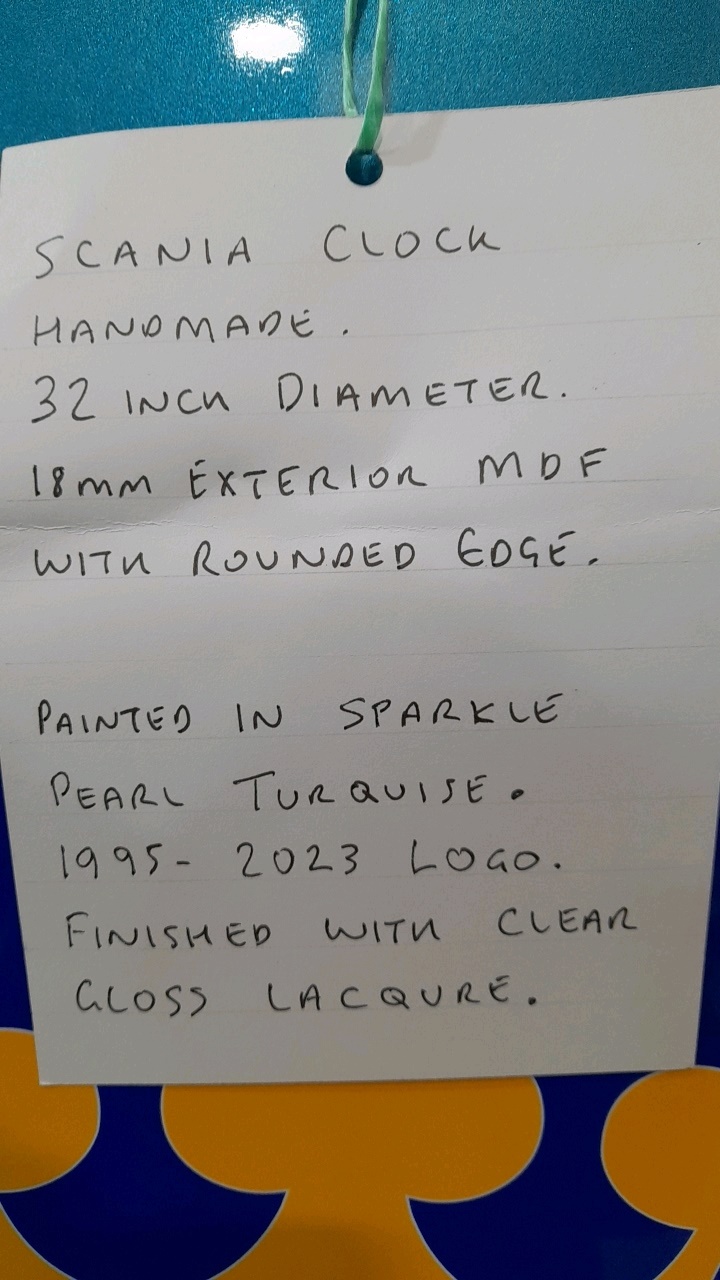 SCANIA CLOCK
HANDMADE.
32 INCH DIAMETER.
18mm EXTERIOR MDF
WITH ROUNDED EDGE.
PAINTED IN SPARKLE
PEARL TURQUISE.
1995-2023 LOGO.
FINISHED WITH CLEAR
GLOSS LACQURE.